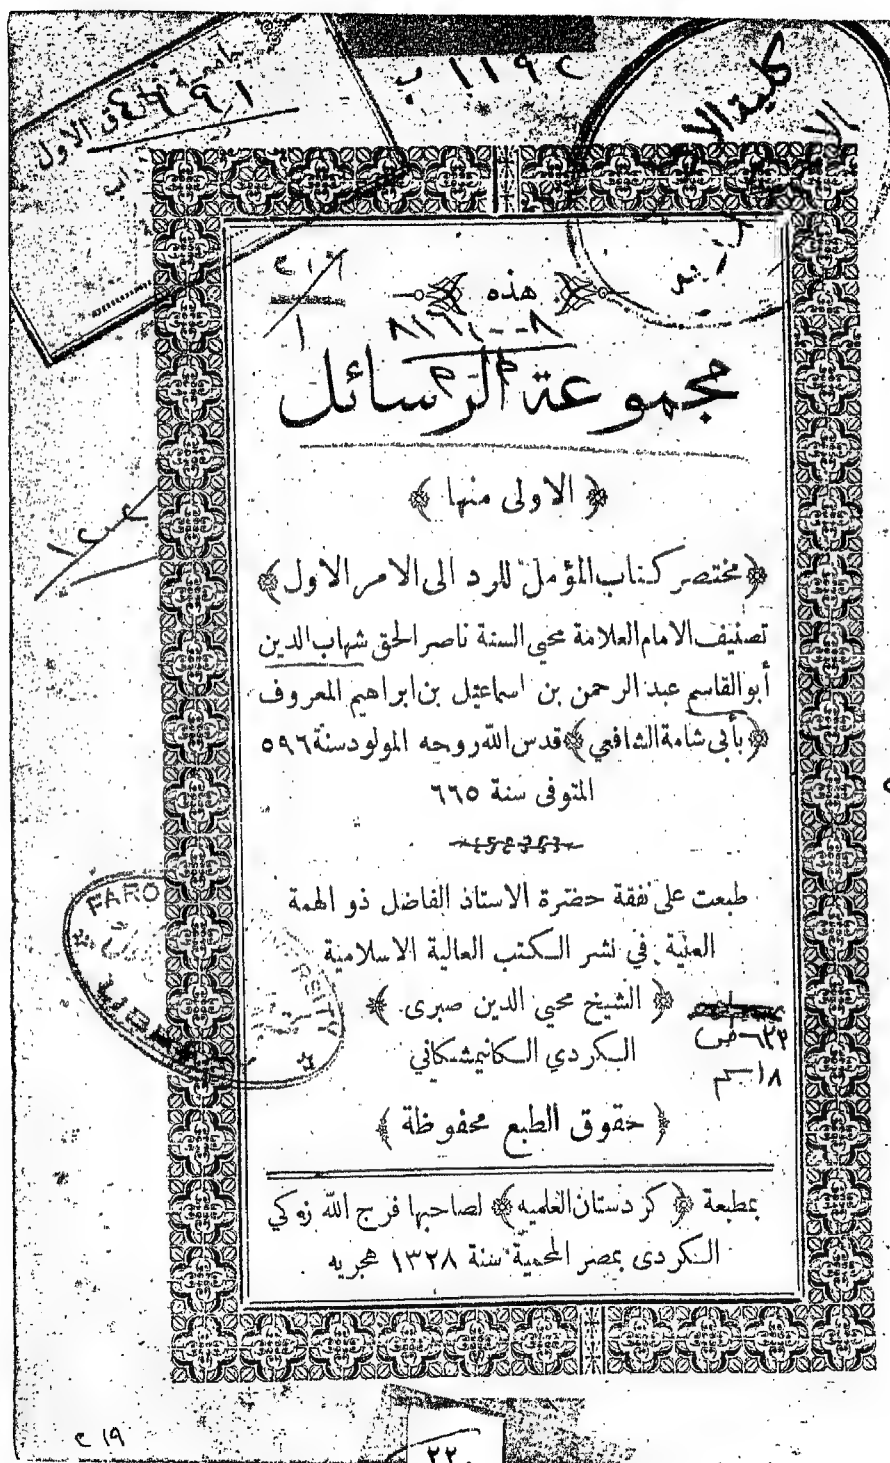 ١١٩٢ ب
ق الاول
كلية الا
هذه
٢١٦
١
مجموعة الرسائل
﴿ الاولى منها ﴾
﴿ مختصر كتاب المؤمل للرد الى الامر الاول ﴾
تصنيف الامام العلامة محيي السنة ناصر الحق شهاب الدين
أبو القاسم عبد الرحمن بن اسماعيل بن ابراهيم المعروف
﴿ بأبي شامة الشافعي ﴾ قدس الله روحه المولود سنة ٥٩٦
المتوفى سنة ٦٦٥
طبعت على نفقة حضرة الاستاذ الفاضل ذو الهمة
العلية في نشر الكتب العالية الاسلامية
﴿ الشيخ محيي الدين صبرى ﴾
الكردي الكانيمشكاني
٦٢٣ ص
١٨ سم
﴿ حقوق الطبع محفوظة ﴾
بمطبعة ﴿ كردستان العلميه ﴾ لصاحبها فرج الله زكي
الكردى بمصر المحمية سنة ١٣٢٨ هجريه
FARO
LIBR
٢١٩
٢٢